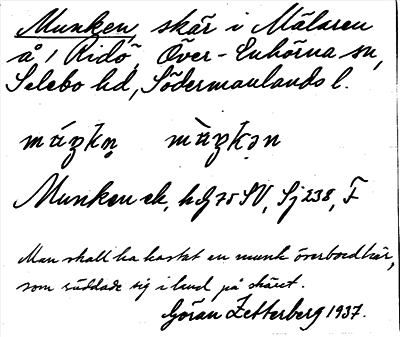 Munken, skär i Mälaren
å / Ridö, Över-Enhörna sn,
Selebo hd, Södermanlands l.
Munken ek, hG75SV, Sj 238, F
Man skall ha kastat en munk överbord här,
som räddade sig i land på skäret.
Göran Zetterberg 1937.